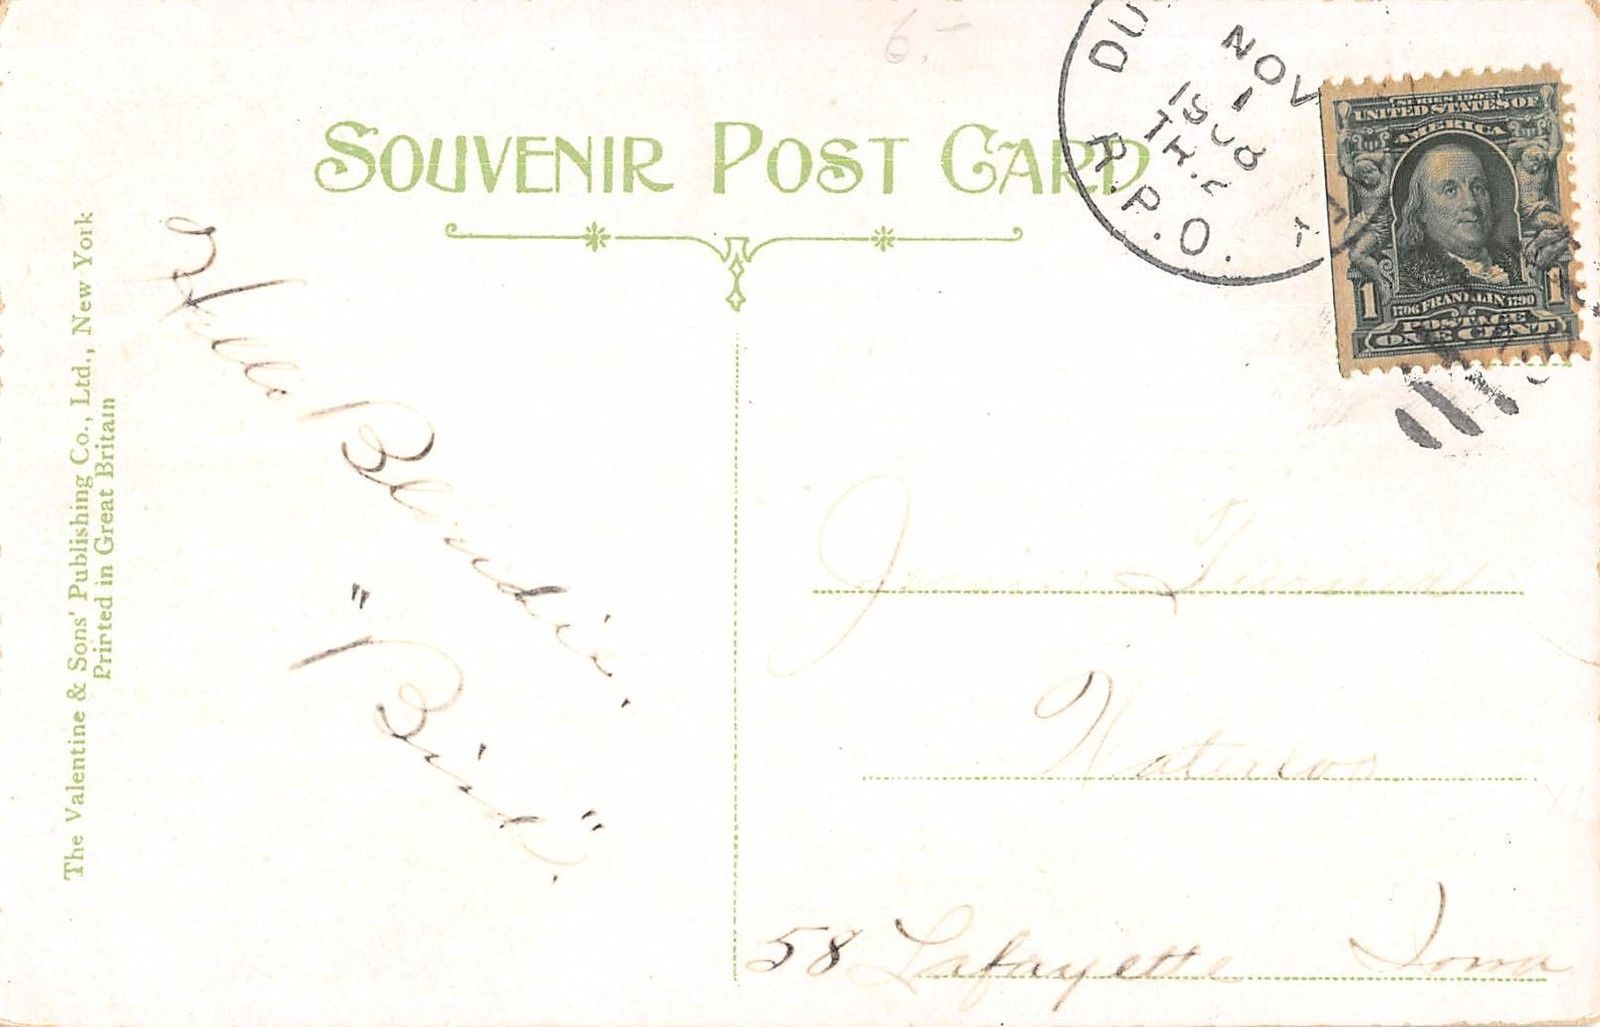 6.-
SOUVENIR POST CARD
DU
NOV
1
1908
TR.
R.P.O.
SERIES 1902
UNITED STATES OF
AMERICA
1 1
1706 FRANKLIN 1790
POSTAGE
ONE CENT
The Valentine & Sons' Publishing Co., Ltd., New York
Printed in Great Britain
Hello
"Bird".
Waterloo
58 Lafayette Iowa